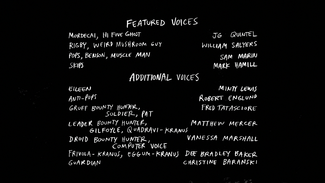 FEATURED VOICES
MORDECAI, HI FIVE GHOST JG QUINTEL
RIGBY, WEIRD MUSHROOM GUY WILLIAM SALYERS
POPS, BENSON, MUSCLE MAN SAM MARIN
SKIPS MARK HAMILL
ADDITIONAL VOICES
EILEEN MINTY LEWIS
ANTI-POPS ROBERT ENGLUND
GRUFF BOUNTY HUNTER, FRED TATASCIORE
SOLDIER, PAT
LEADER BOUNTY HUNTER, MATTHEW MERCER
GILFOYLE, QUADRAVI-KRANUS
DROID BOUNTY HUNTER, VANESSA MARSHALL
COMPUTER VOICE
FRIVOLA-KRANUS, EGGUN-KRANUS DEE BRADLEY BAKER
GUARDIAN CHRISTINE BARANSKI